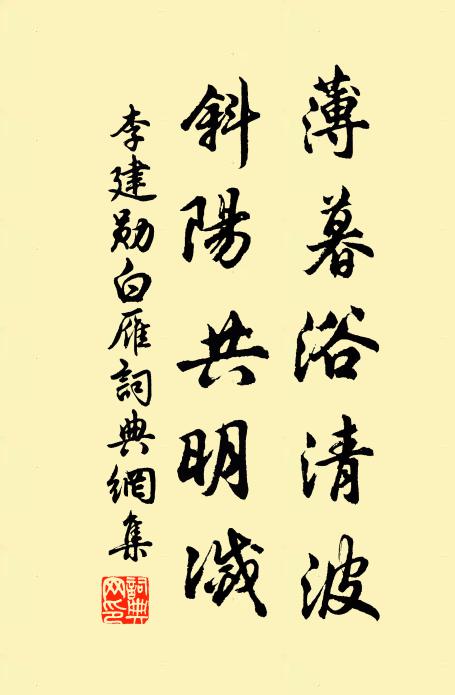 薄暮浴清波
斜陽共明滅
李建勛白雁詞典網集
詞典網印